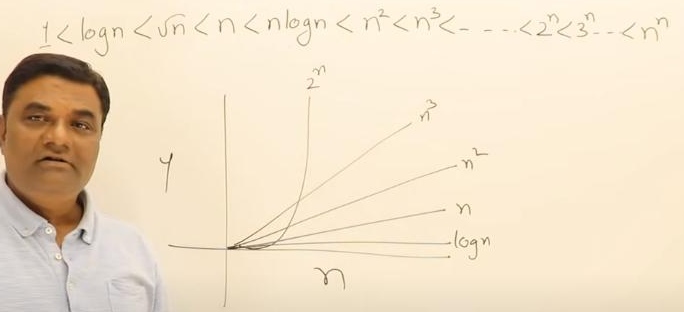 1 < logn < √n < n < nlogn < n² < n³ < - - - - < 2ⁿ < 3ⁿ - - < nⁿ
2ⁿ
n³
y
n²
n
logn
n